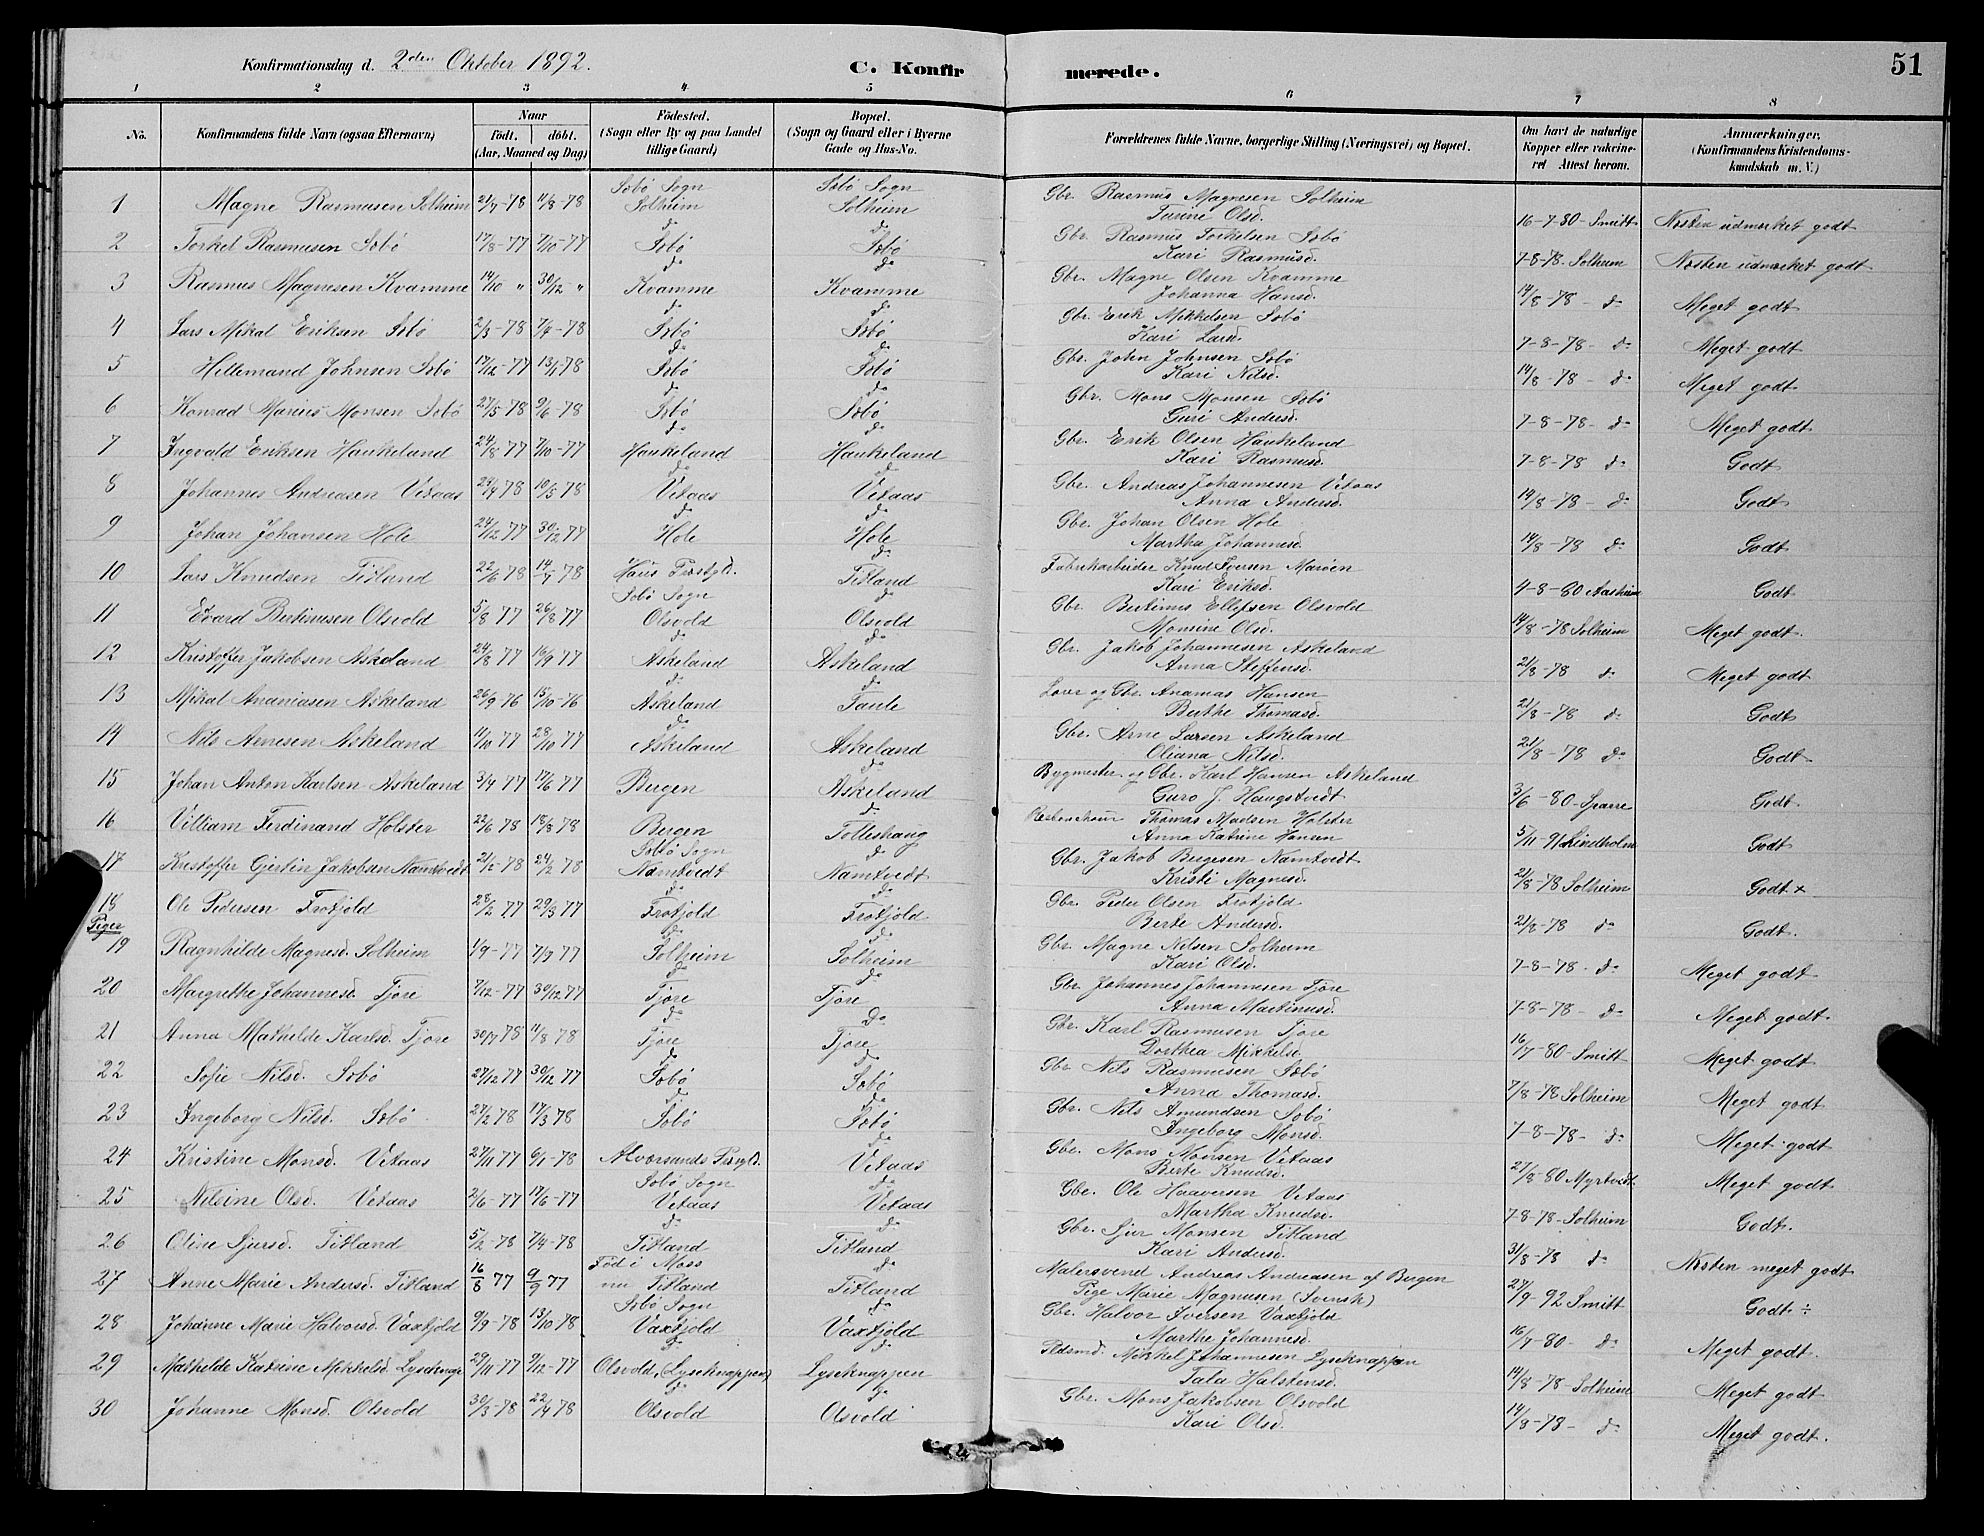 Konfirmationsdag d. 2den Oktober 1892.
C. Konfirmerede.
51
1 2 3 4 5 6 7 8
No.
Konfirmandens fulde Navn (ogsaa Efternavn)
Naar født. døbt. (Aar, Maaned og Dag)
Fødested. (Sogn eller By og paa Landet tillige Gaard)
Bopæl. (Sogn og Gaard eller i Byerne Gade og Hus-No.
Forældrenes fulde Navne, borgerlige Stilling (Næringsvei) og Bopæl.
Om havt de naturlige Kopper eller vakcineret Attest herom.
Anmærkninger. (Konfirmandens Kristendomskundskab m. V.)
1 Magne Rasmusen Solheim 21/7-78 11/8-78 Sæbø Sogn Solheim Sæbø Sogn Solheim Gbr. Rasmus Magnesen Solheim Turine Olsd. 16-7-80-Smitt Næsten udmærket godt
2 Torkel Rasmusen Sæbø 17/8-77 7/10-77 do Sæbø do Sæbø Gbr. Rasmus Torkelsen Sæbø Kari Rasmusd. 7-8-78. Solheim Næsten udmærket godt
3 Rasmus Magnesen Kvamme 14/10 " 30/12 " do Kvamme do Kvamme Gbr. Magne Olsen Kvamme Johanna Hansd. 14/8-78 - do Meget godt
4 Lars Mikal Eriksen Sæbø 2/3-78 7/4-78 do Sæbø Sæbø Gbr. Erik Mikkelsen Sæbø Kari Larsd. 7-8-78- do Meget godt
5 Hillemand Johnsen Sæbø 17/12-77 13/1-78 do Sæbø do Sæbø Gbr. John Johnsen Sæbø Kari Nilsd. 14/8-78 - do Meget godt
6 Konrad Marius Monsen Sæbø 27/5-78 9/6-78 do Sæbø do Sæbø Gbr. Mons Monsen Sæbø Guri Andersd. 7-8-78- do Meget godt
7 Ingvald Eriksen Haukeland 24/8 77 7/10-77 do Haukeland do Haukeland Gbr. Erik Olsen Haukeland Kari Rasmusd. 7-8-78 do Godt
8 Johannes Andreasen Vetaas 24/4 78 10/5 78 do Vetaas do Vetaas Gbr. Andreas Johannesen Vetaas Anna Andersd. 14/8-78- do Godt
9 Johan Johansen Hole 24/12 77 30/12 77 do Hole do Hole Gbr. Johan Olsen Hole Martha Johannesd. 14/8-78 do Godt
10 Lars Knudsen Titland 22/6 78 14/7 78 Haus Prestgd. do Titland Fabrikarbeider Knud Iversen Marøen Kari Eriksd. 4-8-80 Aasheim Godt
11 Edvard Bertinusen Olsvold 5/8 77 26/8 77 Sæbø Sogn Olsvold do Olsvold Gbr. Bertinus Ellefsen Olsvold Monsine Olsd. 14/8-78 Solheim Meget godt.
12 Kristoffer Jakobsen Askeland 24/8 77 16/9 77 do Askeland do Askeland Gbr. Jakob Johannesen Askeland Anna Steffensd. 21/8-78 do Meget godt
13 Mikal Ananiasen Askeland 26/9 76 15/10-76 do Askeland do Taule Gbr. Ananias Hansen Berthe Thomasd. 21/8-78 do Godt
14 Nils Arnesen Askeland 11/10 77 28/10 77 do Askeland Askeland Gbr. Arne Larsen Askeland Oliana Nilsd. 21/8-78 do Godt
15 Johan Anton Karlsen Askeland 3/4 77 17/6 77 Bergen do Askeland Bygmester og Gbr. Karl Hansen Askeland Guro J. Haugstvedt 3/6-80-Sparre Godt.
16 Villiam Ferdinand Holster 22/6 78 18/8 78 Bergen do Totleshaug Thomas Madsen Holster Anna Katrine Hansen 5/11-91 Lindholm Godt
17 Kristoffer Gjertin Jakobsen Namtvedt 21/2-78 24/2 78 Sæbø Sogn Namtvedt do Namtvedt Gbr. Jakob Birgesen Namtvedt Kristi Magnesd. 21/8-78 Solheim Godt x
18 Ole Pedersen Frotjold 28/2 77 29/3 77 do Frotjold do Frotjold Gbr. Peder Olsen Frotjold Berte Andersd. 21/8-78 do Godt.
Piger
19 Ragnhilde Magnesd. Solheim 1/9-77 7/9 77 do Solheim do Solheim Gbr. Magne Nilsen Solheim Kari Olsd. 7-8-78- do Meget godt
20 Margrethe Johannesd. Tjore 7/12-77 30/12 77 do Tjore do Tjore Gbr. Johannes Johannesen Tjore Anna Martinusd. 7-8-78- do Meget godt
21 Anna Mathilde Karlsd. Tjore 30/7 78 11/8 78 do Tjore Do Tjore Gbr. Karl Rasmusen Tjore Dorthea Mikkelsd. 16/7-80 Smitt Meget godt
22 Sofie Nilsd. Sæbø 27/12 77 30/12 77 do Sæbø do Sæbø Gbr. Nils Rasmusen Sæbø Anna Thomasd. 7/8-78 Solheim Meget godt
23 Ingeborg Nilsd. Sæbø 27/2 78 17/3 78 do Sæbø do Sæbø Gbr. Nils Amundsen Sæbø Ingeborg Monsd. 7-8-78- do Meget godt
24 Kristine Monsd. Vetaas 27/11 77 6/1-78 Alversunds Prgld. do Vetaas Gbr. Mons Monsen Vetaas Berte Knudsd. 27/8-80 Myrtvedt Meget godt
25 Nilsine Olsd. Vetaas 2/6-77 17/6-77 Sæbø Sogn Vetaas do Vetaas Gbr. Ole Haaversen Vetaas Martha Knudsd. 7-8-78-Solheim Godt.
26 Oline Sjursd. Titland 5/2-78 7/4-78 do Titland do Titland Gbr. Sjur Monsen Titland Kari Andersd. 31/8-78 do Næsten meget godt
27 Anne Marie Andersd. Titland 16/8 77 9/9 77 Fød i Moss nu Titland Titland Malersvend Andreas Andreasen af Bergen Pige Marie Magnusen (Svensk) 27/9-92 Smitt Godt ÷
28 Johanne Marie Halvorsd. Vaxtjold 9/9-78 13/10-78 Sæbø Sogn Vaxtjold do Vaxtjold Gbr. Halvor Iversen Vaxtjold Marthe Johannesd. 16/7-80- do Meget godt.
29 Mathilde Katrine Mikkelsd. Lyseknap 29/11-77 9/12-77 do Olsvold, (Lyseknappen) do Lyseknappen Pldsmd. Mikkel Johannesen Lyseknappen Tala Halstensd. 14/8-78-Solheim Meget godt
30 Johanne Monsd. Olsvold 30/3-78 22/4 78 do Olsvold do Olsvold Gbr. Mons Jakobsen Olsvold Kari Olsd. 14/8-78- do Meget godt.